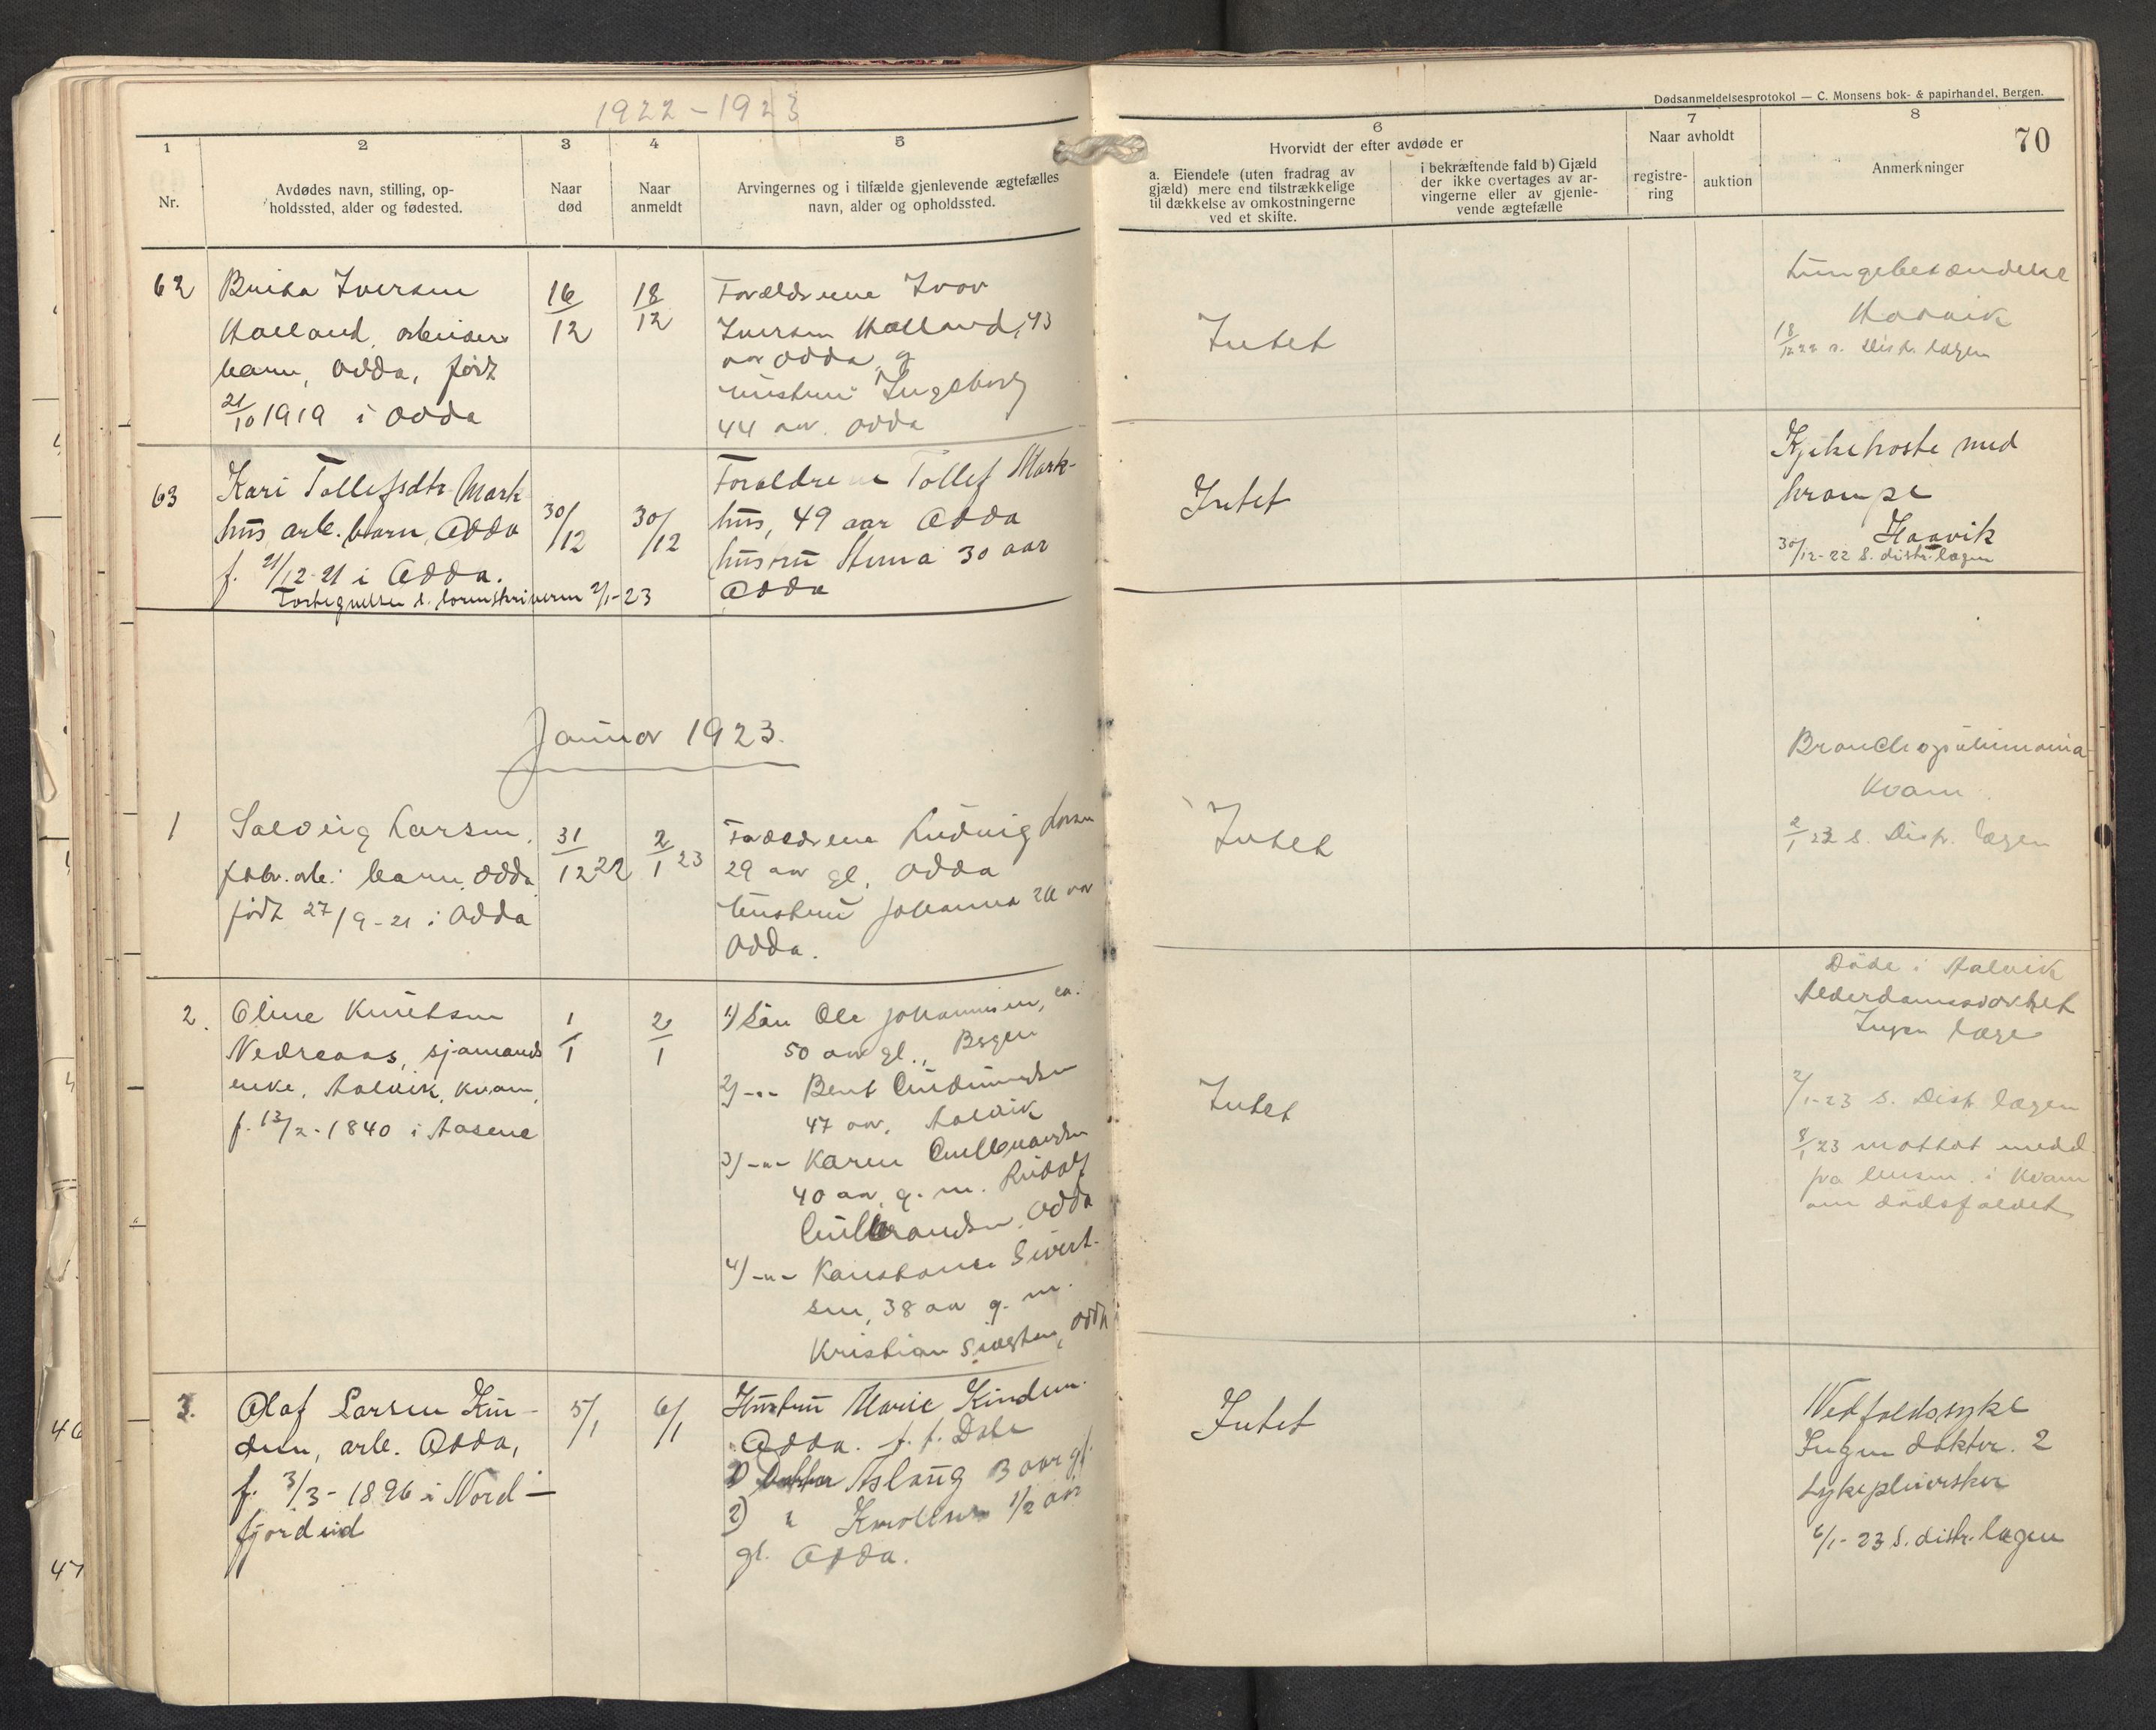 1922-1923
Dødsanmeldelsesprotokol — C. Monsens bok- & papirhandel, Bergen.
70
1
Nr.
2
Avdødes navn, stilling, op-
holdssted, alder og fødested.
3
Naar
død
4
Naar
anmeldt
5
Arvingernes og i tilfælde gjenlevende ægtefælles
navn, alder og opholdssted.
6
Hvorvidt der efter avdøde er
a. Eiendele (uten fradrag av
gjæld) mere end tilstrækkelige
til dækkelse av omkostningerne
ved et skifte.
i bekræftende fald b) Gjæld
der ikke overtages av ar-
vingerne eller av gjenle-
vende ægtefælle
7
Naar avholdt
registre-
ring
auktion
8
Anmerkninger
62
Brita Iversen
Holland, arbeider
barn, Odda, født
21/10 1919 i Odda
16/12
18/12
Forældrene Ivar
Iversen Holland, 43
aar Odda, g
hustru Ingeborg
44 aar. Odda
Intet
Lungebetændelse
Haavik
18/12 22 s. Distr. lægen
63
Kari Tollefsdtr. Mark
hus, arb. barn, Odda
f. 21/12-21 i Odda.
Fortegnelse s. sorenskriveren 2/1-23
30/12
30/12
Foreldrene Tollef Mark-
hus, 49 aar Odda
hustru Anna 30 aar
Odda
Intet
Kjikehoste med
krampe
Haavik
30/12-22 S. distr. lægen
Januar 1923.
1
Solveig Larsen,
fabr. arb. barn, Odda
født 27/9-21 i Odda
31/12 22
2/1 23
Forældrene Ludvig Larsen
29 aar gl. Odda
hustru Johanna aar
Odda.
Intet
Kvam
2/1 23 s. Distr. lægen
2.
Oline Knutsen
Nedreaas, sjømands
enke, Aalvik, Kvam,
f. 13/2-1840 i Aasene
1/1
2/1
1) Søn Ole Johannesen, ca.
50 aar gl., Bergen
2) -"- Bent
47 aar, Aalvik
3) -"- Karen Gulbrandsen
40 aar, g. m. Rudolf
Gulbrandsen, Odda
4) -"- Konstance Sivert-
sen, 38 aar g. m.
Kristian Sivertsen, Odda
Intet
Døde i Aalvik
Alderdomssvakhet
Ingen læge
2/1-23 s. Distr. lægen
8/1 23 mottat medd.
fra lensm. i Kvam
om dødsfaldet
3.
Olaf Larsen Kin-
dem, arb. Odda,
f. 3/3-1896 i Nord-
fjordeid
5/1
6/1
Hustru Marie Kindem
Odda. f. f. Dale
1) Datter Aslaug 3 aar gl.
2) " 1/2 aar
gl. Odda.
Intet
Nedfaldssyke
Ingen doktor. 2
Sykepleiersker
6/1-23 S. distr. lægen
46
47